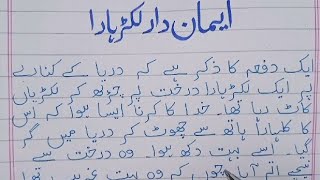 ایمان دار لکڑہارا
ایک دفعہ کا ذکر ہے کہ دریا کے کنارے
پر ایک لکڑہارا درخت پر چڑھ کر لکڑیاں
کاٹ رہا تھا۔ خدا کا کرنا ایسا ہوا کہ اس
کا کلہاڑا ہاتھ سے چھوٹ کر دریا میں گر
گیا۔ اسے بہت دکھ ہوا۔ وہ درخت سے
نیچے اتر آیا۔ چوں کہ وہ بہت غریب تھا